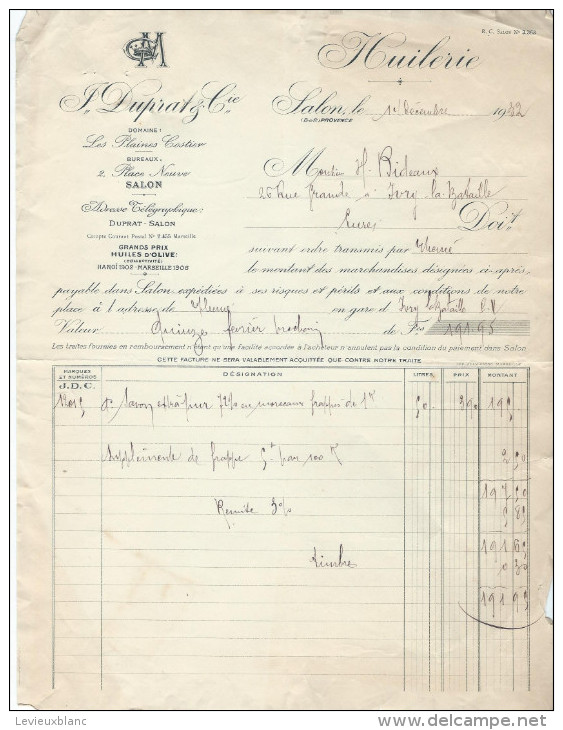 R. C. Salon Nº
Huilerie
J. Duprat & Cie
Salon, le 1er décembre 1932
(B-du-R) PROVENCE
DOMAINE:
Les Plaines Costier
BUREAUX:
2, Place Neuve
SALON
Adresse Télégraphique:
DUPRAT-SALON
Compte Courant Postal Nº Marseille
GRANDS PRIX
HUILES D'OLIVE
(COLLECTIVITÉ)
HANOI 1902-MARSEILLE 1908
Monsieur H. Bideaux
26 Rue Grande à Ivry-la-Bataille
Eure
Doit
suivant ordre transmis par
le montant des marchandises désignées ci-après,
payable dans Salon, expédiées à ses risques et périls et aux conditions de notre
place à l'adresse de en gare d' Ivry la Bataille
Valeur Quinze février prochain de Fcs 191.95
Les traites fournies en remboursement n'étant qu'une facilité accordée à l'acheteur n'annulent pas la condition du paiement dans Salon
CETTE FACTURE NE SERA VALABLEMENT ACQUITTÉE QUE CONTRE NOTRE TRAITE
MARQUES ET NUMÉROS DÉSIGNATION LITRES PRIX MONTANT
J.D.C.
savon extra pur 72% en morceaux frappés de 50 390 195
Supplémente de frappe 5f par 100 K 2,50
197,50
Remise 3% 5,85
191 65
timbre 0 30
191 95
Levieuxblanc
delcampe.net